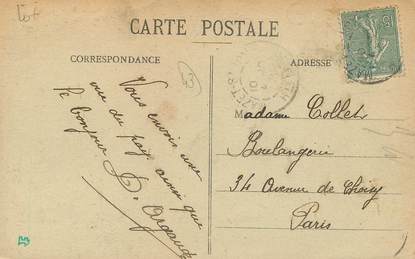 Lot
CARTE POSTALE
CORRESPONDANCE
ADRESSE
15
Vous envois une
vue du pays ainsi que
le bonjour
Madame Collet
Boulangerie
34 Avenue de Choisy
Paris